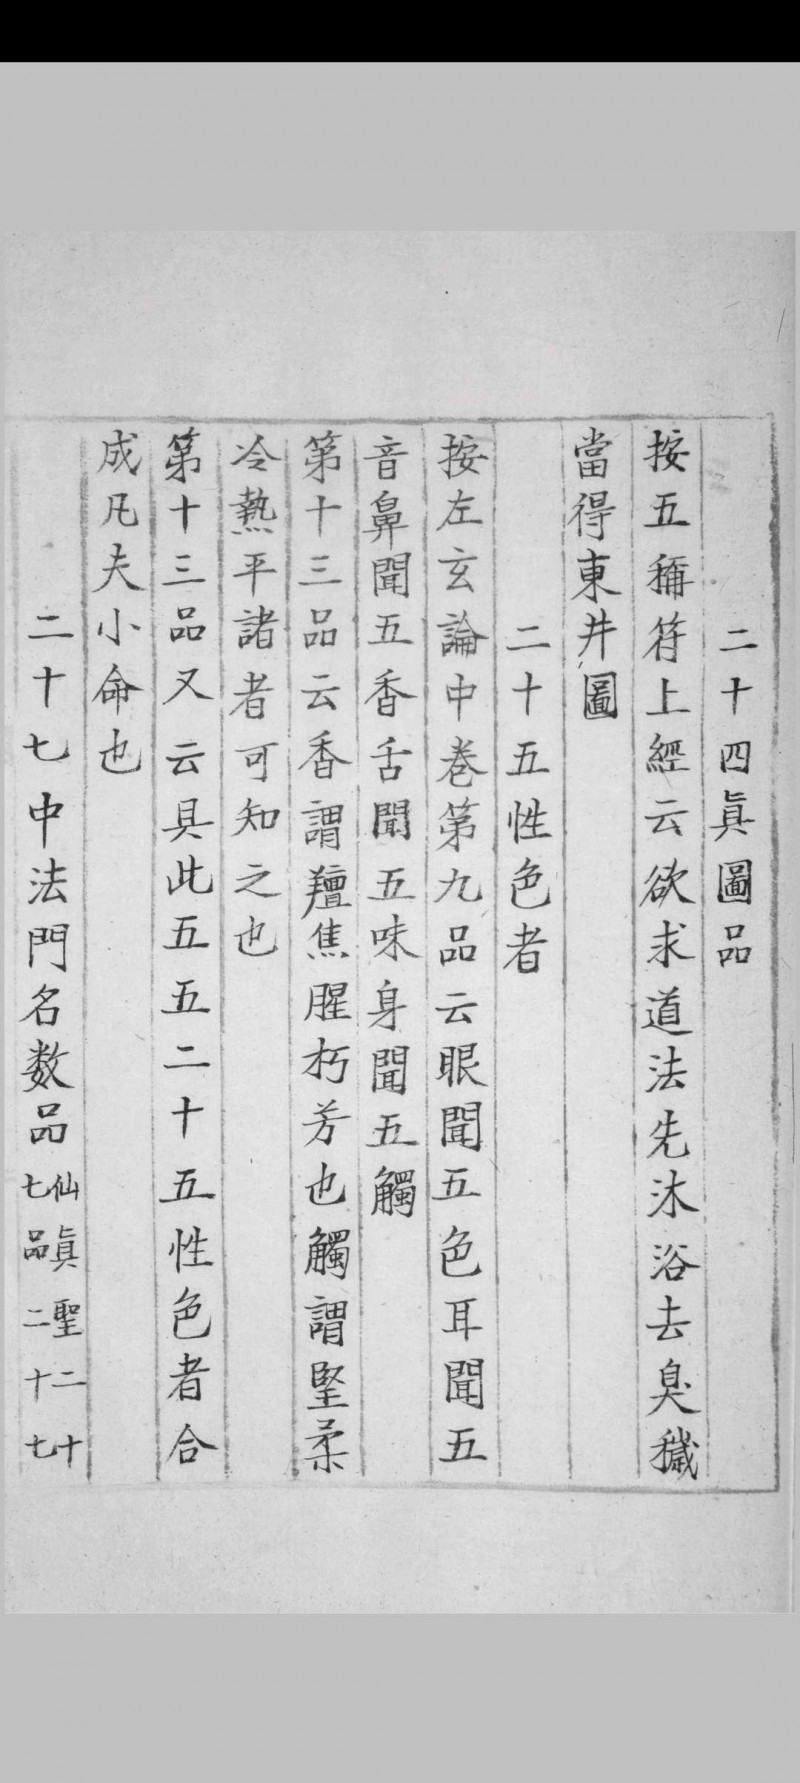 二十四眞圖品
按五稱符上經云欲求道法先沐浴去臭穢
當得東井圖
二十五性色者
按左玄論中卷第九品云眼聞五色耳聞五
音鼻聞五香舌聞五味身聞五觸
第十三品云香謂羶焦腥朽芳也觸謂堅柔
冷熱平諸者可知之也
第十三品又云具此五五二十五性色者合
成凡夫小命也
二十七中法門名数品仙眞聖二十
七品二十七